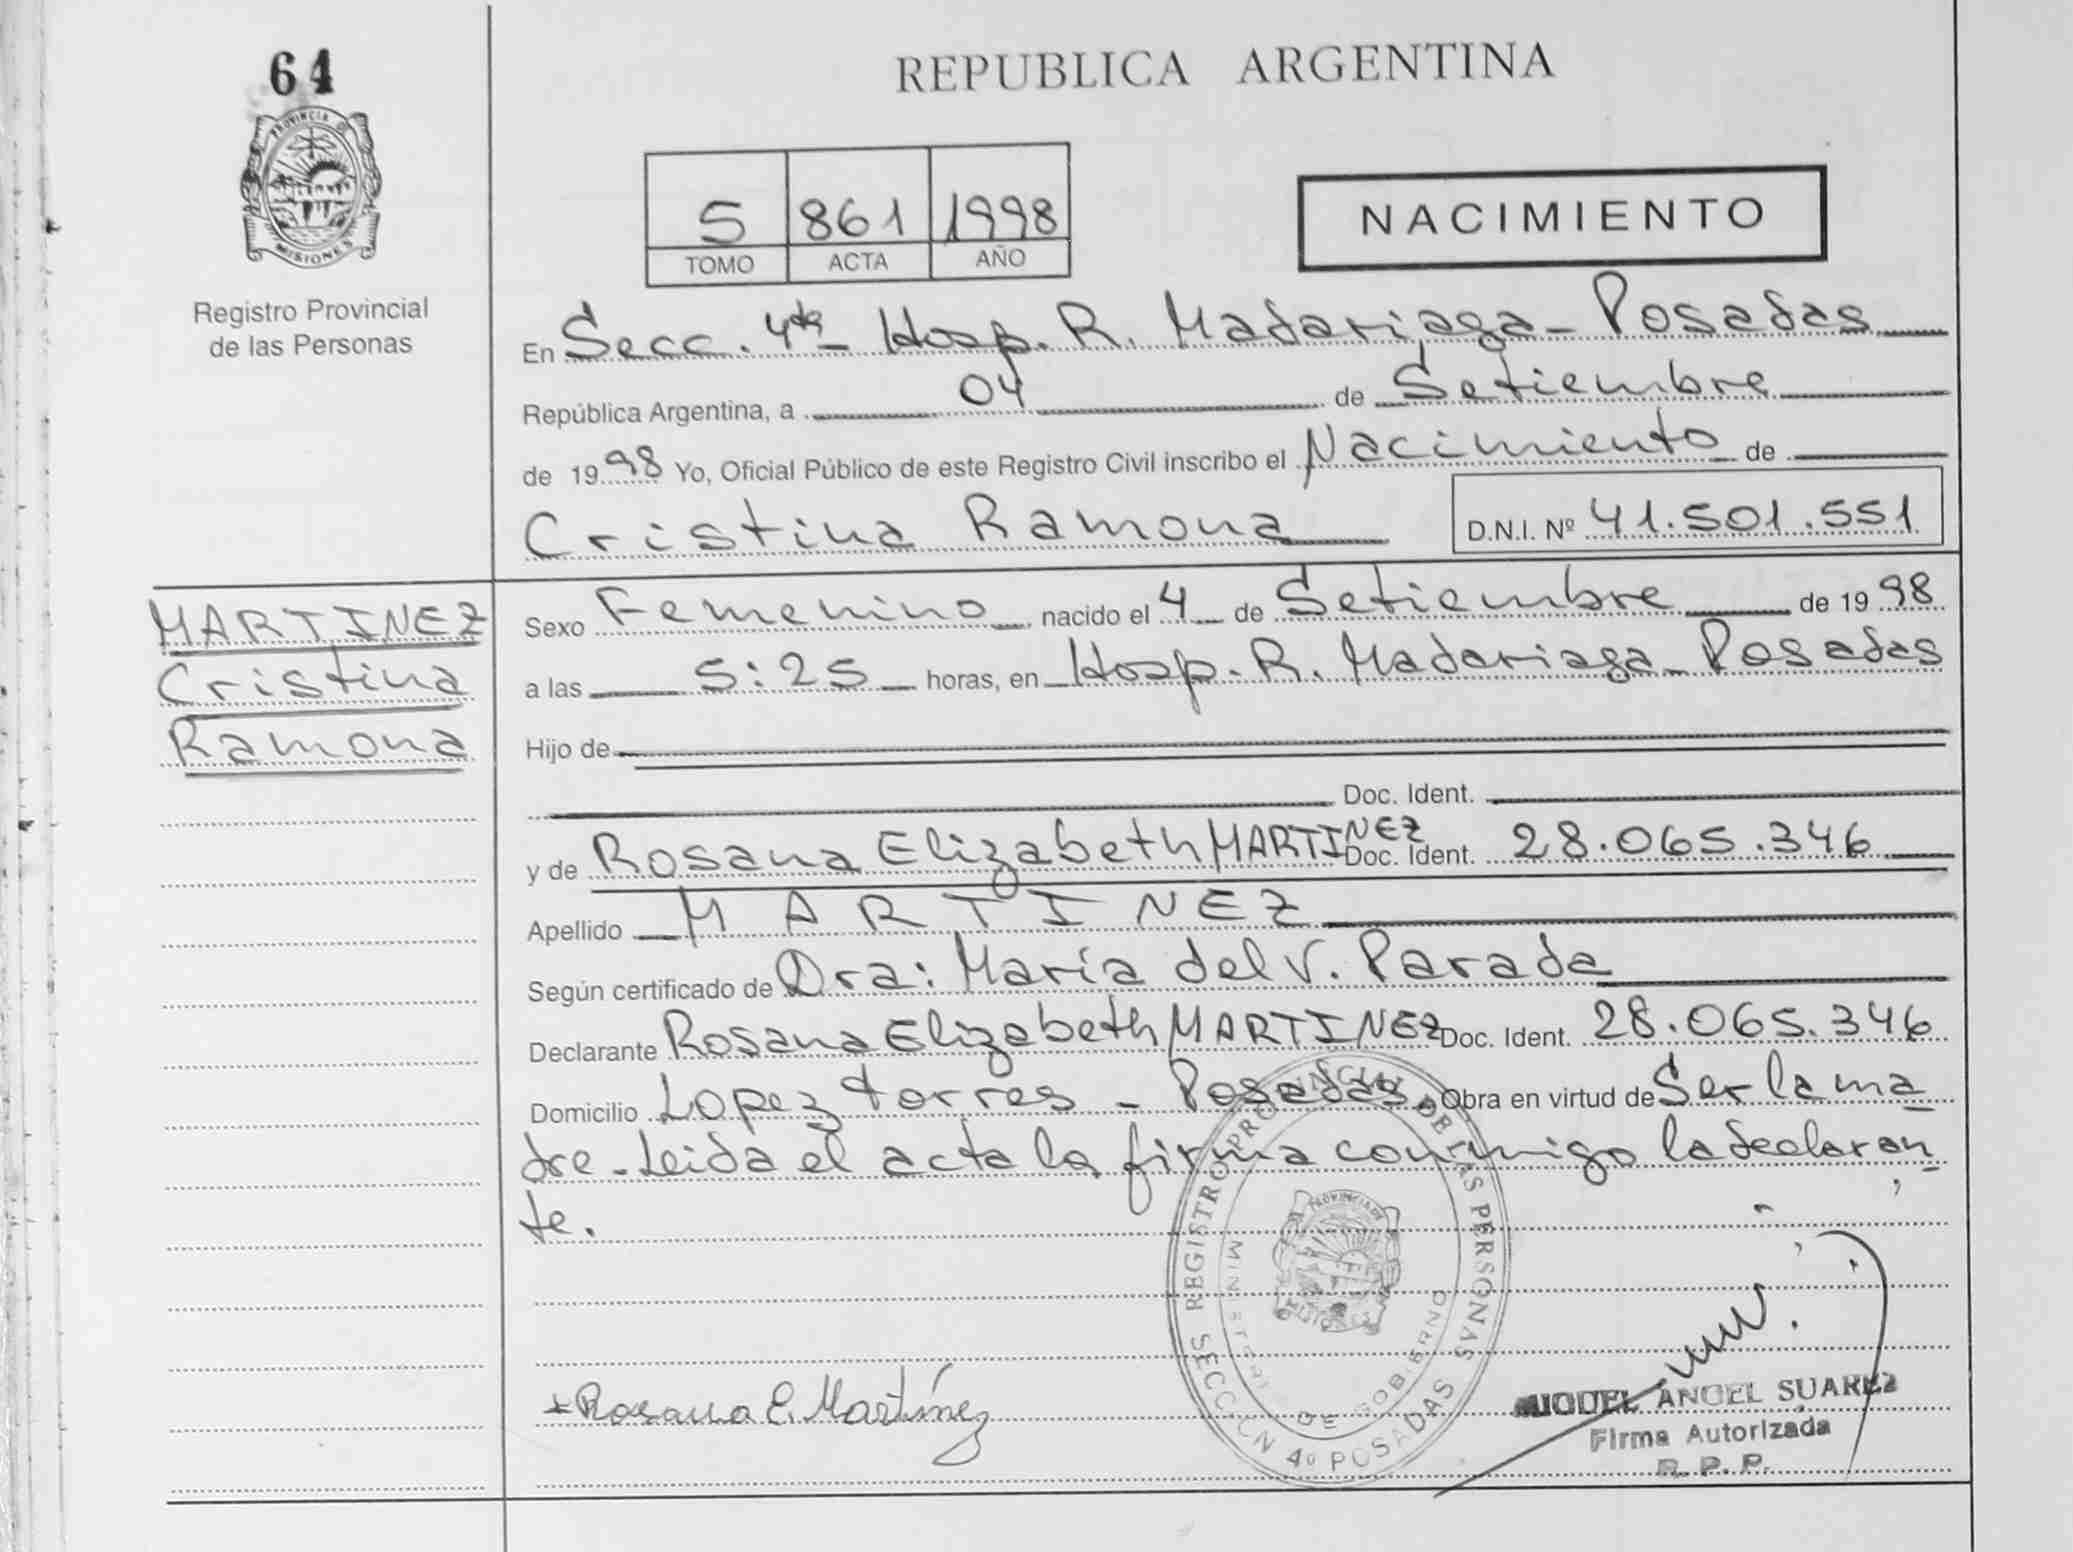 64
PROVINCIA DE
MISIONES
Registro Provincial
de las Personas
REPUBLICA ARGENTINA
5 861 1998
TOMO ACTA AÑO
NACIMIENTO
En Secc. 4ta Hosp. R. Madariaga - Posadas
República Argentina, a 04 de Setiembre
de 1998 Yo, Oficial Público de este Registro Civil inscribo el Nacimiento de
Cristina Ramona D.N.I. Nº 41.501.551
MARTINEZ
Cristina
Ramona
Sexo Femenino nacido el 4 de Setiembre de 1998
a las 5:25 horas, en Hosp. R. Madariaga - Posadas
Hijo de
Doc. Ident.
y de Rosana Elizabeth MARTINEZ Doc. Ident. 28.065.346
Apellido MARTINEZ
Según certificado de Dra: María del V. Parada
Declarante Rosana Elizabeth MARTINEZ Doc. Ident. 28.065.346
Domicilio Lopez Torres - Posadas. Obra en virtud de Ser la ma
dre - Leida el acta la firma conmigo la declaran
te.
REGISTRO PROVINCIAL DE LAS PERSONAS
MINISTERI DE GOBIERNO
SECCION 4º POSADAS
Rosana E. Martínez
ANGEL SUAREZ
Firma Autorizada
R. P. P.